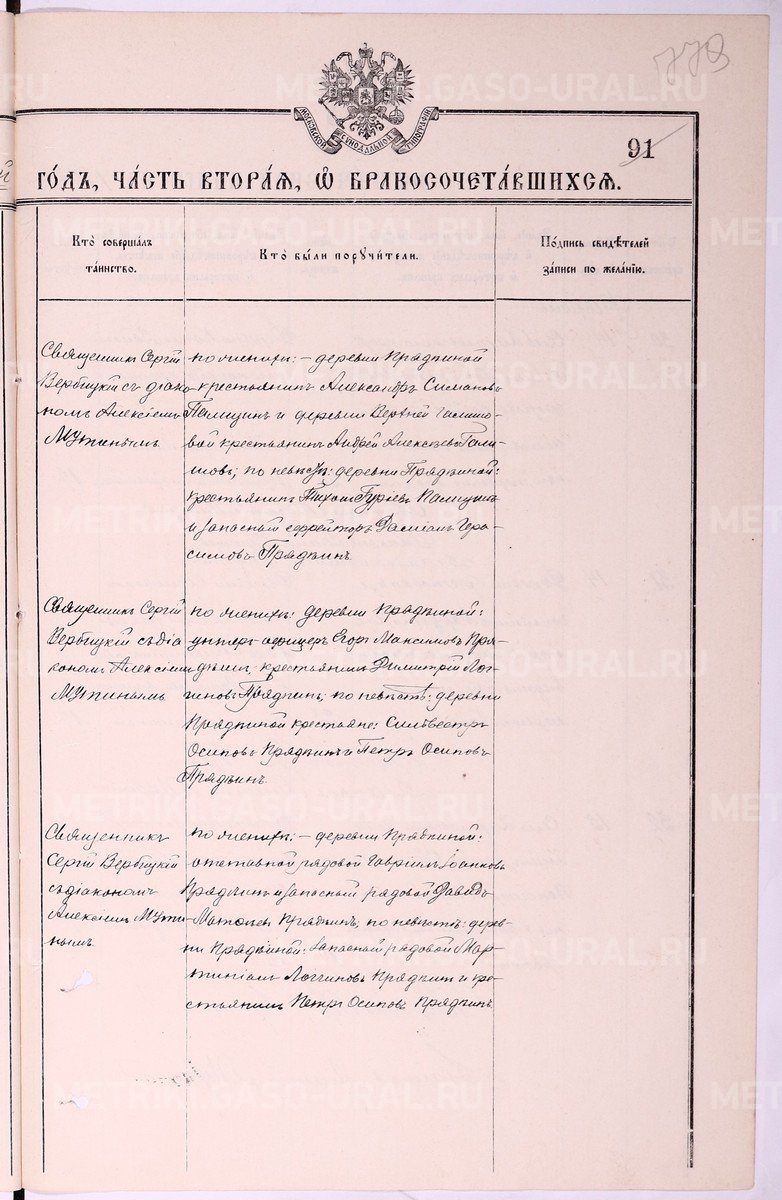 778
МОСКОВСКОЙ СѴНОДАЛЬНОЙ ТИПОГРАФІИ
91
го́дъ, ча́сть втора́ѧ, ѡ҆ бракосочета́вшихсѧ.
Кто̀ соверша́лъ
та́инство.
Кто̀ бы́ли поручи́тели.
По́дпись свидѣ́телей
за́писи по жела́нїю.
Священникъ Сергій
Вербицкій съ діако-
номъ Алексіемъ
Мутинымъ
по женихѣ: – деревни Прядѣиной
крестьянинъ Александръ Симановъ
и деревни Верхней Галишо-
вой крестьянинъ Андрей Алексѣевъ Гали-
шовъ; по невѣстѣ: деревни Прядѣиной:
крестьянинъ Тихонъ Гуріевъ
и запасный ефрейторъ Даміанъ Гера-
симовъ Прядѣинъ
Священникъ Сергій
Вербицкій съ діа-
кономъ Алексіемъ
Мутинымъ
по женихѣ: деревни Прядѣиной:
унтеръ-офицеръ Егоръ Максимовъ Пря-
дѣинъ, крестьянинъ Димитрій Лог-
гиновъ Прядѣинъ; по невѣстѣ: деревни
Прядѣиной крестьяне: Сильвестръ
Осиповъ Прядѣинъ и Петръ Осиповъ
Прядѣинъ
Священникъ
Сергій Вербицкій
съ діакономъ
Алексіемъ Мути-
нымъ
по женихѣ: – деревни Прядѣиной:
отставной рядовой Гавріилъ Іоанновъ
Прядѣинъ и запасный рядовой Давидъ
Матѳіевъ Прядѣинъ; по невѣстѣ: дерев-
ни Прядѣиной: запасный рядовой Мар-
тиніанъ Логгиновъ Прядѣинъ и кре-
стьянинъ Петръ Осиповъ Прядѣинъ
METRIKI.GASO-URAL.RU